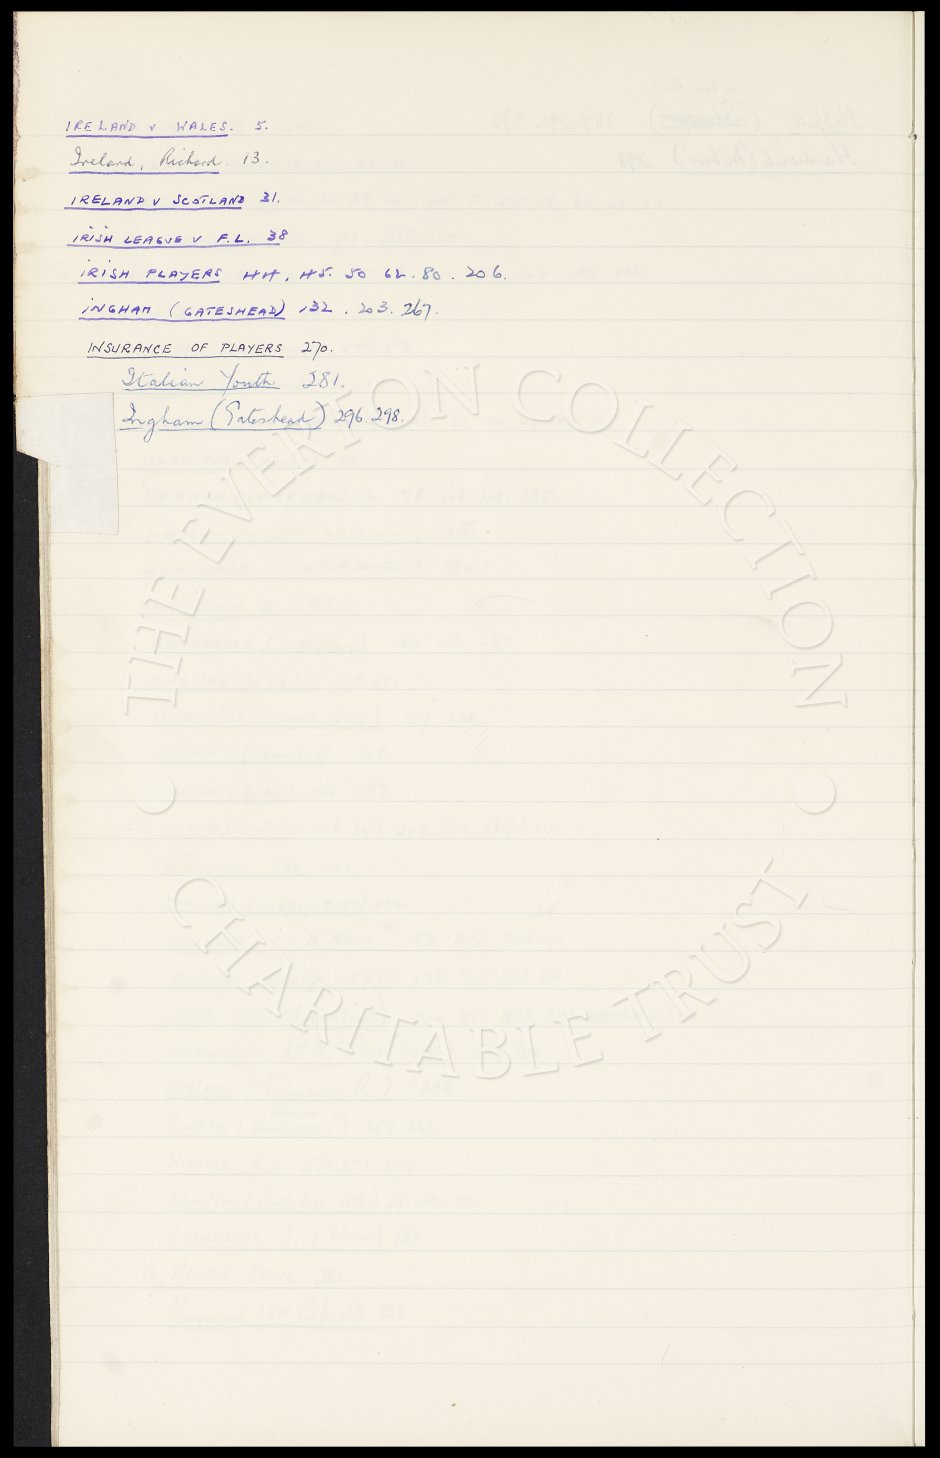 IRELAND v WALES. 5.
Ireland, Richard. 13.
IRELAND v SCOTLAND 31.
IRISH LEAGUE v F.L. 38
IRISH PLAYERS 44. 45. 50 62. 80. 206.
INGHAM (GATESHEAD) 132. 203. 267.
INSURANCE OF PLAYERS 270.
Italian Youth 281.
Ingham (Gateshead) 296. 298.
THE EVERTON COLLECTION
CHARITABLE TRUST